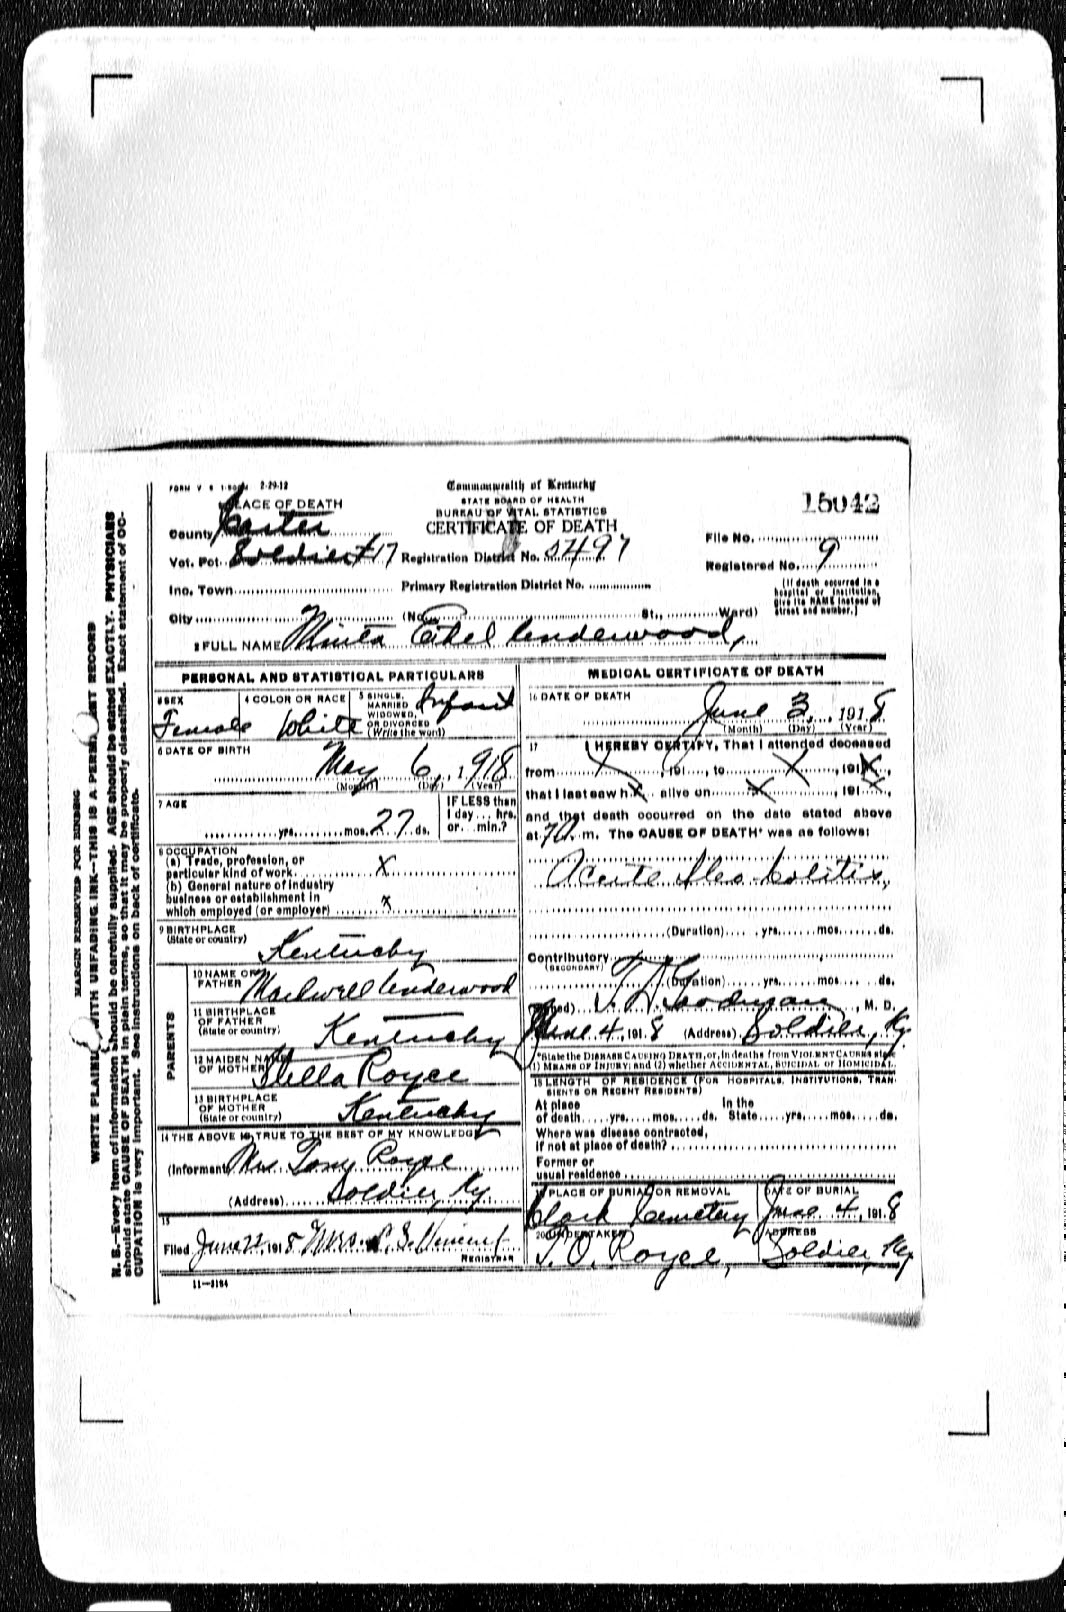 FORM V. S. 1-50M 2-29-12
Commonwealth of Kentucky
STATE BOARD OF HEALTH
BUREAU OF VITAL STATISTICS
CERTIFICATE OF DEATH
15042
PLACE OF DEATH
County Carter
Vot. Pct. Soldier #17
Inc. Town
City (No. St., Ward)
Registration District No. 5497
Primary Registration District No.
File No.
Registered No. 9
(If death occurred in a
hospital or institution,
give its NAME instead of
street and number.)
2 FULL NAME Minta Ethel Underwood,
PERSONAL AND STATISTICAL PARTICULARS
3 SEX
Female
4 COLOR OR RACE
White
5 SINGLE,
MARRIED
WIDOWED,
OR DIVORCED
(Write the word)
Infant
6 DATE OF BIRTH
May 6, 1918
(Month) (Day) (Year)
7 AGE
yrs. mos. 27 ds.
IF LESS than
1 day... hrs.
or...min.?
8 OCCUPATION
(a) Trade, profession, or
particular kind of work X
(b) General nature of industry
business or establishment in
which employed (or employer) x
9 BIRTHPLACE
(State or country)
Kentucky
PARENTS
10 NAME OF
FATHER Underwood
11 BIRTHPLACE
OF FATHER
(State or country) Kentucky
12 MAIDEN NAME
OF MOTHER Stella Royce
13 BIRTHPLACE
OF MOTHER
(State or country) Kentucky
14 THE ABOVE IS TRUE TO THE BEST OF MY KNOWLEDGE
(Informant) Mrs. Tony Royce
(Address) Soldier, Ky
15
Filed June 22, 1918 Mrs. Vincent
REGISTRAR
11—3184
MEDICAL CERTIFICATE OF DEATH
16 DATE OF DEATH
June 3, 1918
(Month) (Day) (Year)
17 I HEREBY CERTIFY, That I attended deceased
from X, 191, to X, 191X,
that I last saw h X alive on X, 191X,
and that death occurred on the date stated above
at 7 A. m. The CAUSE OF DEATH* was as follows:
Acute Ileo Colitis,
(Duration) yrs. mos. ds.
Contributory
(SECONDARY)
(Duration) yrs. mos. ds.
(Signed) Goodman, M. D.
June 4, 1918 (Address) Soldier, Ky.
*State the DISEASE CAUSING DEATH, or, in deaths from VIOLENT CAUSES state
(1) MEANS OF INJURY; and (2) whether ACCIDENTAL, SUICIDAL or HOMICIDAL.
18 LENGTH OF RESIDENCE (FOR HOSPITALS, INSTITUTIONS, TRAN-
SIENTS OR RECENT RESIDENTS)
At place In the
of death yrs. mos. ds. State yrs. mos. ds.
Where was disease contracted,
if not at place of death?
Former or
usual residence
19 PLACE OF BURIAL OR REMOVAL
Clark Cemetery
DATE OF BURIAL
June 4, 1918
20 UNDERTAKER
T. O. Royce,
ADDRESS
Soldier, Ky
MARGIN RESERVED FOR BINDING
WRITE PLAINLY WITH UNFADING INK—THIS IS A PERMANENT RECORD
N. B.—Every item of information should be carefully supplied. AGE should be stated EXACTLY. PHYSICIANS
should state CAUSE OF DEATH in plain terms, so that it may be properly classified. Exact statement of OC-
CUPATION is very important. See instructions on back of certificate.